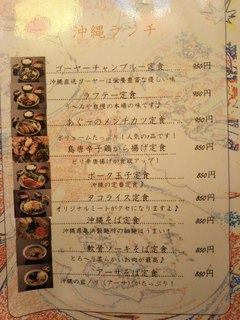 沖縄ランチ
ゴーヤーチャンプルー定食 950円
沖縄直送ゴーヤーは栄養豊富な優しい味
ラフテー定食 950円
うぺみや自慢の本場の味です♪
あぐーのメンチカツ定食 950円
ボリュームたっぷり!人気の1品です!
島唐辛子鶏から揚げ定食 850円
ピリ辛唐揚げが食欲アップ!
ポーク玉子定食 850円
沖縄の定番定食♪
タコライス定食 850円
オリジナルミートがクセになりますよ♪
沖縄そば定食 850円
沖縄県亀浜製麺所の細麺はうまい
軟骨ソーキそば定食 850円
とろ〜り柔らかいお肉が最高♪
アーサそば定食 850円
沖縄の岩ノリ(アーサ)がたっぷり!